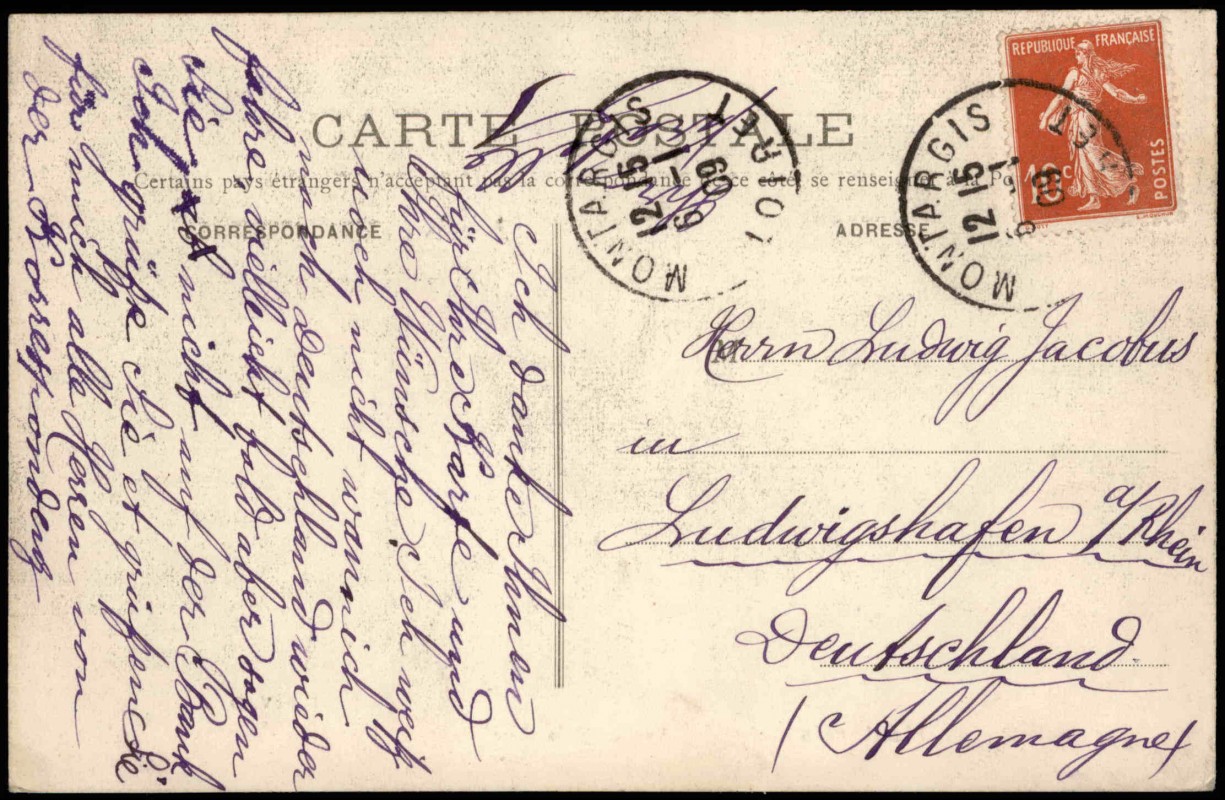 REPUBLIQUE FRANÇAISE
POSTES
10c
CARTE POSTALE
Certains pays étrangers n'acceptant pas la correspondance de ce côté, se renseigner à la Poste
CORRESPONDANCE
ADRESSE
MONTARGIS
LOIRET
12 15
6 -1
09
MONTARGIS
LOIRET
12 15
6 -1
09
Herrn Ludwig Jacobus
in
Ludwigshafen a/Rhein
Deutschland
(Allemagne)
Ich danke Ihnen
für Ihre Karte und
Ihre Wünsche Ich weif
noch nicht wann ich
nach Deutschland wider
fahre vielleicht bald aber sagen
Sie nicht auf der Bank
Ich grüße Sie et grüßen Sie
für mich alle Herren von
der Korresponden